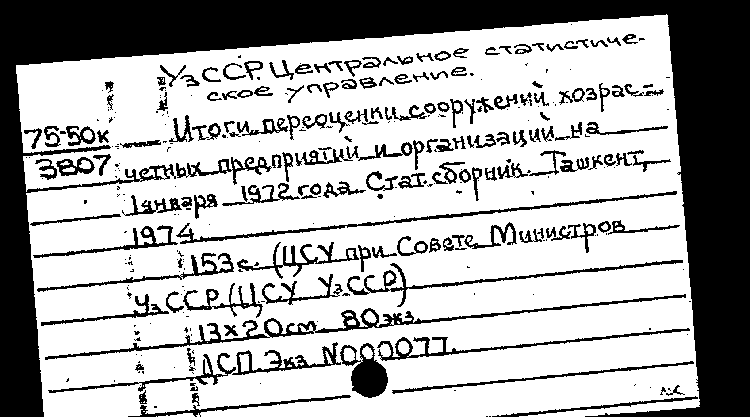 УзССР. Центральное статистиче-
ское управление.
75-50к Итоги переоценки сооружений хозрас-
3807 четных предприятий и организаций на
1 января 1972 года. Стат. сборник. Ташкент,
1974.
153 с. (ЦСУ при Совете Министров
УзССР. (ЦСУ УзССР)
13×20см. 80 экз.
ДСП. Экз. N000077.